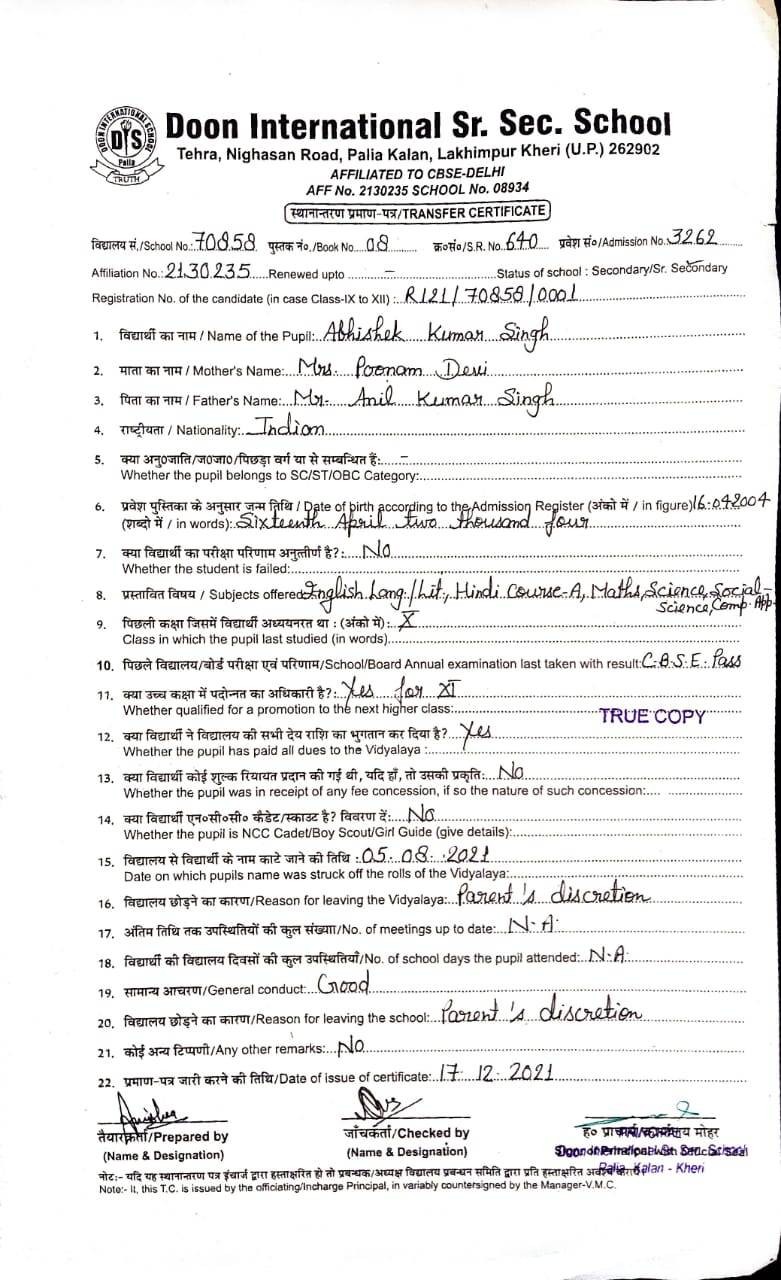 DOON INTERNATIONAL SCHOOL
DIS
Palia
TRUTH
Doon International Sr. Sec. School
Tehra, Nighasan Road, Palia Kalan, Lakhimpur Kheri (U.P.) 262902
AFFILIATED TO CBSE-DELHI
AFF No. 2130235 SCHOOL No. 08934
स्थानान्तरण प्रमाण-पत्र/TRANSFER CERTIFICATE
विद्यालय सं./School No.: 70858 पुस्तक नं०./Book No. 08 क्र०सं०/S.R. No. 640 प्रवेश सं०/Admission No. 3262
Affiliation No.: 2130235 Renewed upto – Status of school : Secondary/Sr. Secondary
Registration No. of the candidate (in case Class-IX to XII) : R121/70858/0001
1. विद्यार्थी का नाम / Name of the Pupil: Abhishek Kumar Singh
2. माता का नाम / Mother's Name: Mrs. Poonam Devi
3. पिता का नाम / Father's Name: Mr. Anil Kumar Singh
4. राष्ट्रीयता / Nationality: Indian
5. क्या अनु०जाति/ज०जा०/पिछड़ा वर्ग या से सम्बन्धित हैं: –
Whether the pupil belongs to SC/ST/OBC Category:
6. प्रवेश पुस्तिका के अनुसार जन्म तिथि / Date of birth according to the Admission Register (अंको में / in figure) 16.04.2004
(शब्दो में / in words): Sixteenth April two thousand four
7. क्या विद्यार्थी का परीक्षा परिणाम अनुत्तीर्ण है?: No
Whether the student is failed:
8. प्रस्तावित विषय / Subjects offered: English Lang./Lit, Hindi Course-A, Maths, Science, Social-
Science, Comp. App.
9. पिछली कक्षा जिसमें विद्यार्थी अध्ययनरत था : (अंको में): X
Class in which the pupil last studied (in words)
10. पिछले विद्यालय/बोर्ड परीक्षा एवं परिणाम/School/Board Annual examination last taken with result: C.B.S.E. Pass
11. क्या उच्च कक्षा में पदोन्नत का अधिकारी है?: Yes for XI
Whether qualified for a promotion to the next higher class:
TRUE COPY
12. क्या विद्यार्थी ने विद्यालय की सभी देय राशि का भुगतान कर दिया है? Yes
Whether the pupil has paid all dues to the Vidyalaya :
13. क्या विद्यार्थी कोई शुल्क रियायत प्रदान की गई थी, यदि हाँ, तो उसकी प्रकृति: No
Whether the pupil was in receipt of any fee concession, if so the nature of such concession:
14. क्या विद्यार्थी एन०सी०सी० कैडेट/स्काउट है? विवरण दें: No
Whether the pupil is NCC Cadet/Boy Scout/Girl Guide (give details):
15. विद्यालय से विद्यार्थी के नाम काटे जाने की तिथि : 05.08.2021
Date on which pupils name was struck off the rolls of the Vidyalaya:
16. विद्यालय छोड़ने का कारण/Reason for leaving the Vidyalaya: Parent's discretion
17. अंतिम तिथि तक उपस्थितियों की कुल संख्या/No. of meetings up to date: N.A.
18. विद्यार्थी की विद्यालय दिवसों की कुल उपस्थितियाँ/No. of school days the pupil attended: N.A.
19. सामान्य आचरण/General conduct: Good
20. विद्यालय छोड़ने का कारण/Reason for leaving the school: Parent's discretion
21. कोई अन्य टिप्पणी/Any other remarks: No
22. प्रमाण-पत्र जारी करने की तिथि/Date of issue of certificate: 17.12.2021
तैयारकर्ता/Prepared by जाँचकर्ता/Checked by ह० प्राचार्य मोहर
(Name & Designation) (Name & Designation) Doon International Sr. Sec. School
Palia Kalan - Kheri
नोट:- यदि यह स्थानान्तरण पत्र इंचार्ज द्वारा हस्ताक्षरित हो तो प्रबन्धक/अध्यक्ष विद्यालय प्रबन्धन समिति द्वारा प्रति हस्ताक्षरित
Note:- It, this T.C. is issued by the officiating/Incharge Principal, in variably countersigned by the Manager-V.M.C.